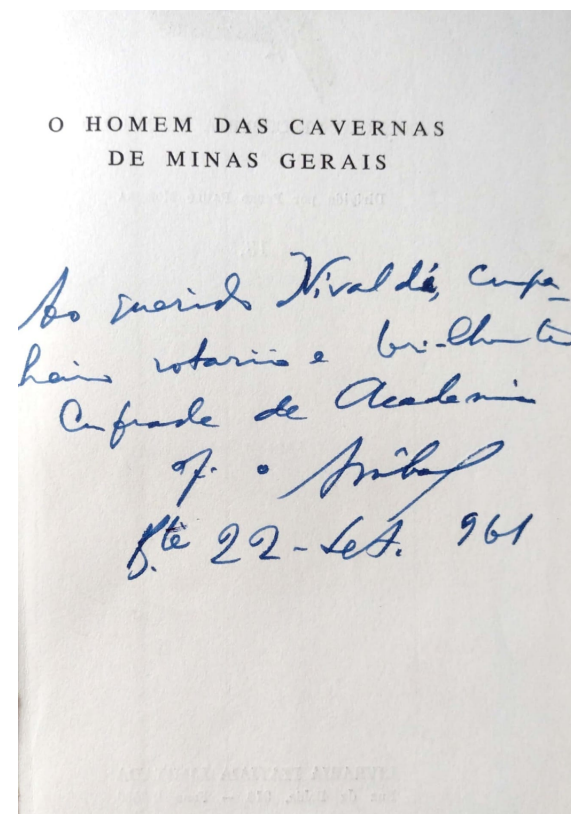 O HOMEM DAS CAVERNAS
DE MINAS GERAIS
Ao querido Nivaldo, compa-
nheiro rotario e brilhante
Confrade de Academia
of. o Aníbal
Bte 22-Set. 961